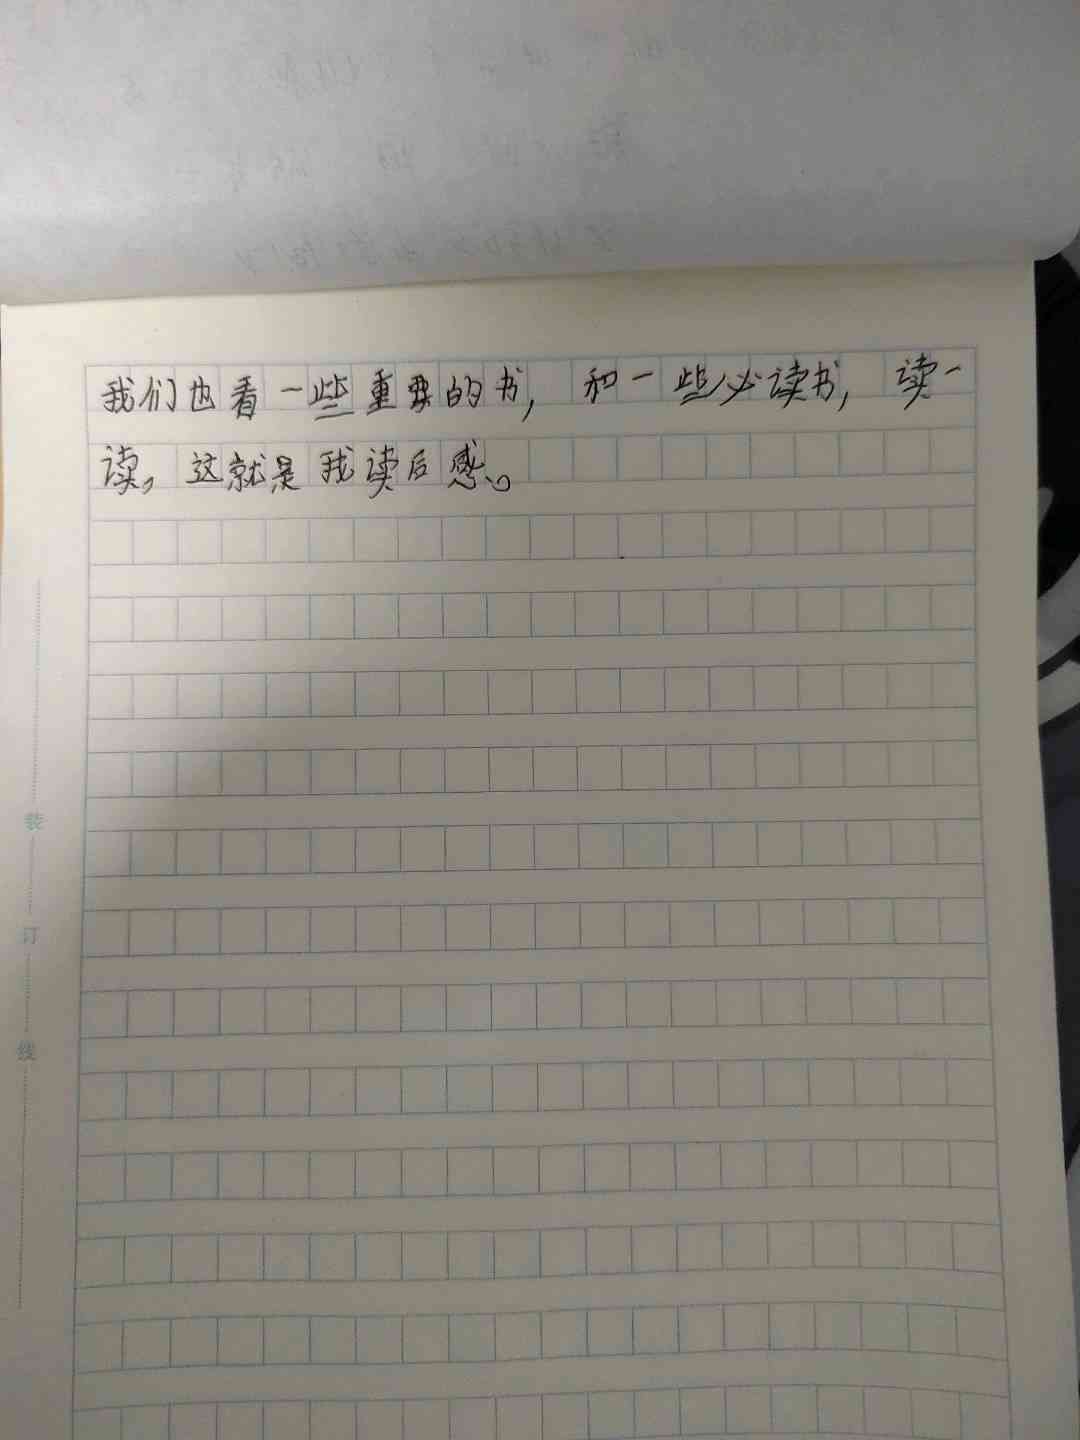 我们也看一些重要的书，和一些必读书，读一
读，这就是我读后感。
装
订
线